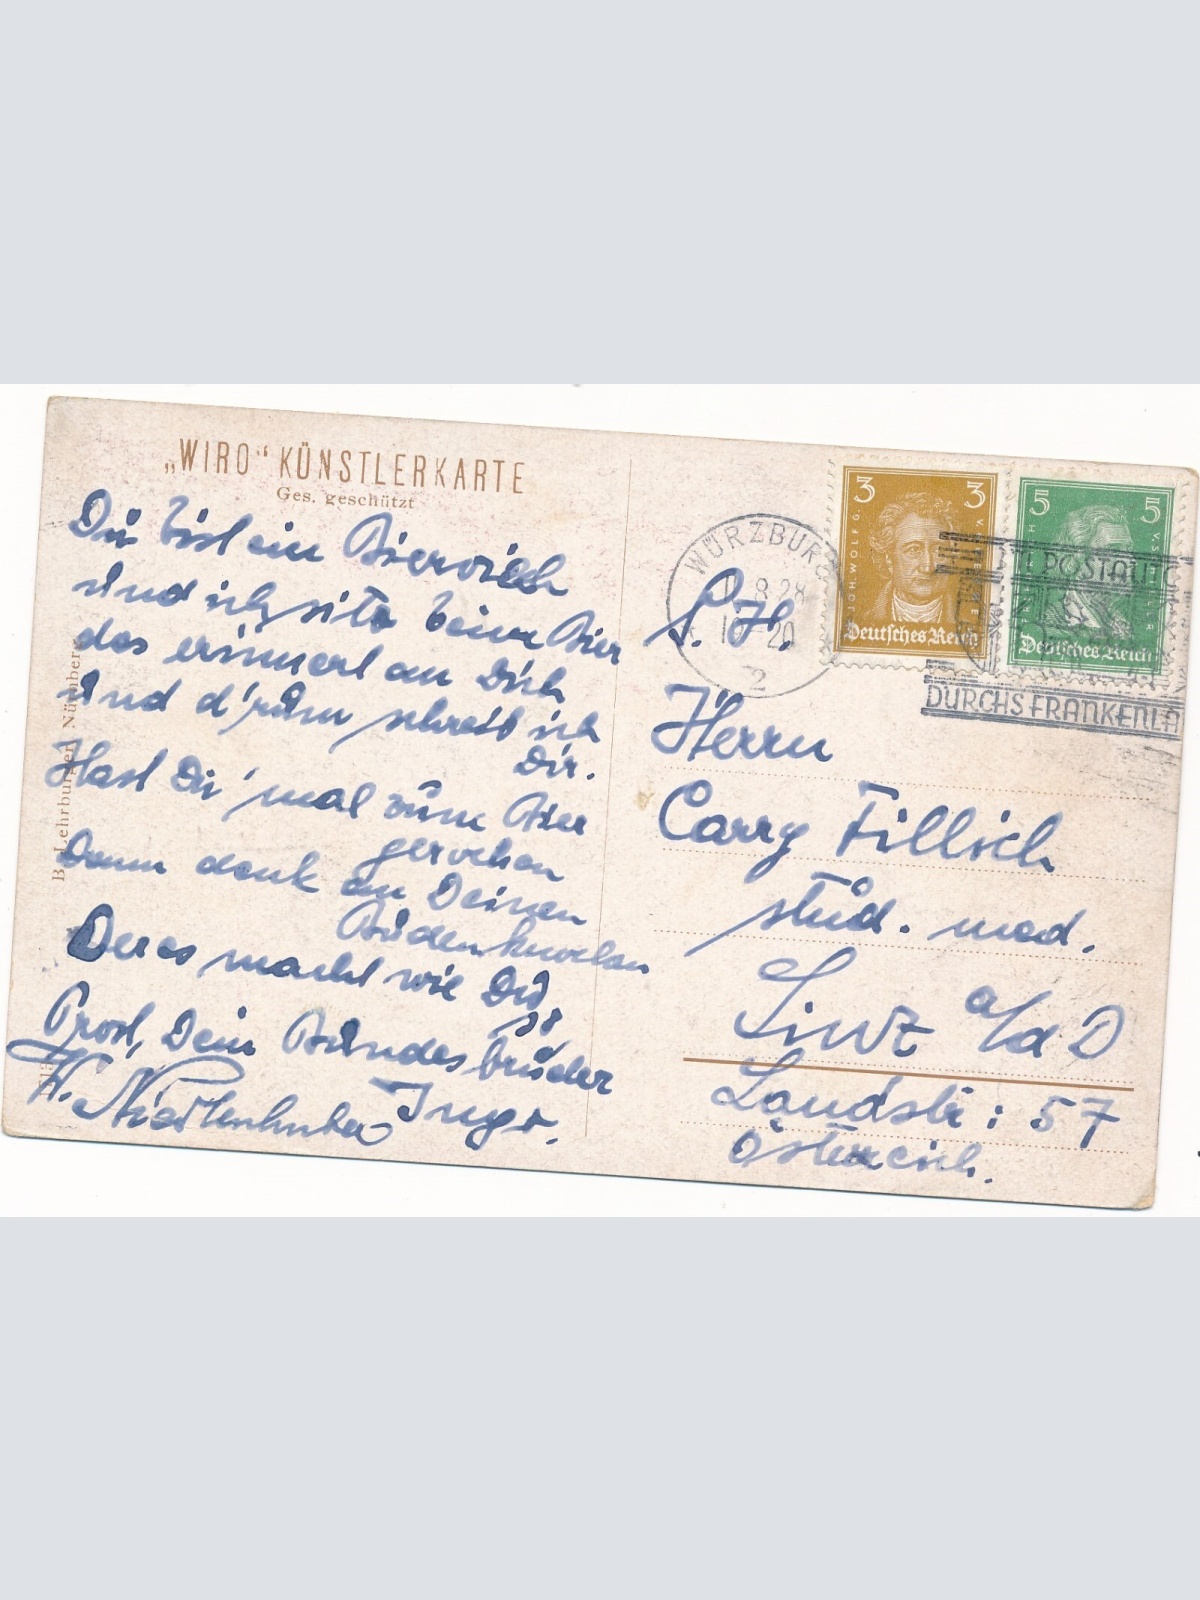 „WIRO“ KÜNSTLERKARTE
Ges. geschützt
Du bist ein Bierviech
und ich sitz beim Bier
das erinnert an Dich
und d'rum schreib ich
Dir.
Hast Du 'mal zum Bier
gerochen
Dann denk an Deinen
Budenknochen
Der es macht wie Du,
Prost, Dein Bundesbruder
Ingo.
B. Lehrburger, Nürnberg
WÜRZBURG
8.28
2
3 3
JOH. WOLFG. V.
Deutsches Reich
5 5
Deutsches Reich
POSTAUTO
DURCHS FRANKENLA
S. H.
Herrn
Carry Fillich
stud. med.
Linz a/d D
Landstr: 57
Österreich.